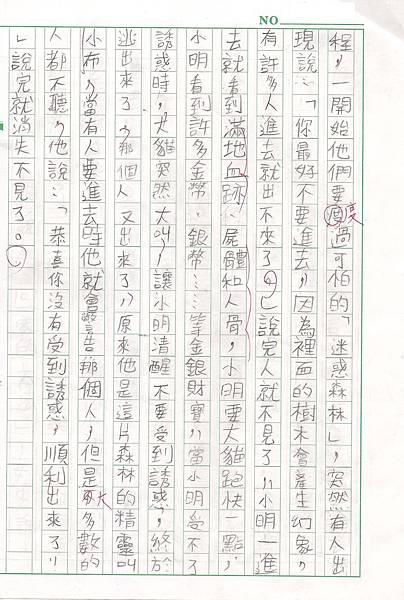 NO
程，一開始他們要度過可怕的「迷惑森林」，突然有人出
現說：「你最好不要進去，因為裡面的樹木會產生幻象，
有許多人進去就出不來了。」說完人就不見了，小明一進
去就看到滿地血跡，屍體和人骨，小明要大貓跑快一點，
小明看到許多金幣，銀幣……等金銀財寶，當小明當不了
誘惑時，大貓突然大叫，讓小明清醒不要受到誘惑，終於
逃出來了，那個人又出來了，原來他是這片森林的精靈叫
小布，當有人要進去時他就會警告那個人，但是大多數的
人都不聽，他說：「恭喜你沒有受到誘惑，順利出來了，
」說完就消失不見了。